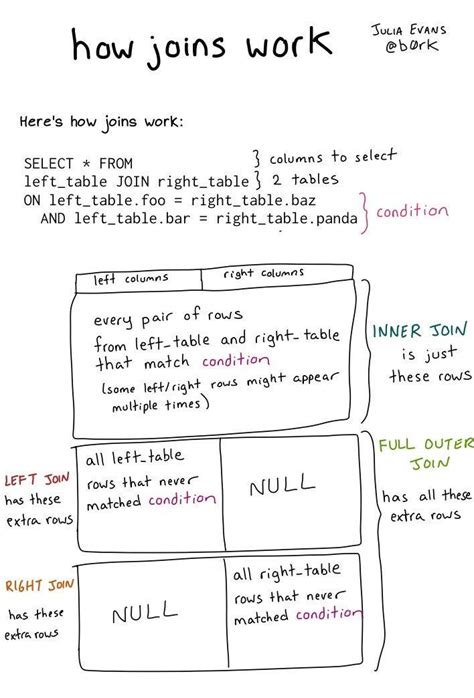 how joins work
JULIA EVANS
@b0rk
Here's how joins work:
SELECT * FROM } columns to select
left_table JOIN right_table } 2 tables
ON left_table.foo = right_table.baz
AND left_table.bar = right_table.panda } condition
left columns right columns
every pair of rows
from left_table and right_table
that match condition
(some left/right rows might appear
multiple times)
INNER JOIN
is just
these rows
LEFT JOIN
has these
extra rows
all left_table
rows that never
matched condition
NULL
FULL OUTER
JOIN
has all these
extra rows
RIGHT JOIN
has these
extra rows
NULL
all right_table
rows that never
matched condition